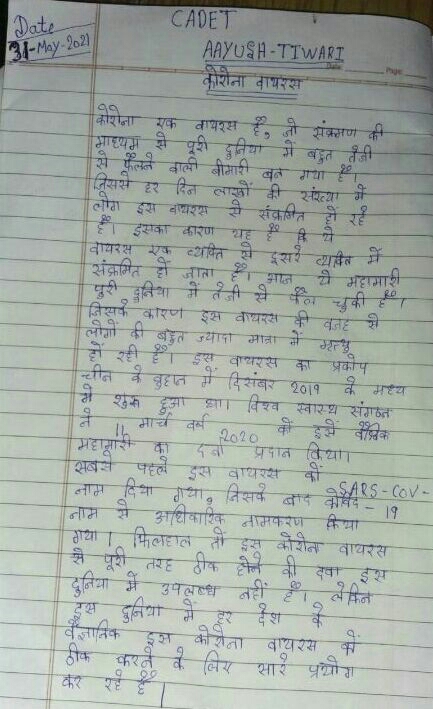 Date
31-May-2021
CADET
AAYUSH-TIWARI
Date: Page:
कोरोना वायरस
कोरोना एक वायरस है, जो संक्रमण की
माध्यम से पूरी दुनिया में बहुत तेजी
से फैलने वाली बीमारी बन गया है।
जिससे हर दिन लाखों की संख्या में
लोग इस वायरस से संक्रमित हो रहे
है। इसका कारण यह है कि ये
वायरस एक व्यक्ति से दूसरे व्यक्ति में
संक्रमित हो जाता है। आज ये महामारी
पुरी दुनिया में तेजी से फैल चुकी है।
जिसके कारण इस वायरस की वजह से
लोगों की बहुत ज्यादा मात्रा में मृत्यु
हो रही है। इस वायरस का प्रकोप
चीन के वुहान में दिसंबर 2019 के मध्य
में शुरू हुआ था। विश्व स्वास्थ संगठन
ने 11 मार्च वर्ष 2020 को इसे वैश्विक
महामारी का दर्जा प्रदान किया।
सबसे पहले इस वायरस को SARS-COV-
नाम दिया गया, जिसके बाद कोविद - 19
नाम से आधिकारिक नामकरण किया
गया। फिलहाल तो इस कोरोना वायरस
से पूरी तरह ठीक होने की दवा इस
दुनिया में उपलब्ध नहीं है। लेकिन
इस दुनिया में हर देश के
वैज्ञानिक इस कोरोना वायरस को
ठीक करने के लिए सारे प्रयोग
कर रहे है।